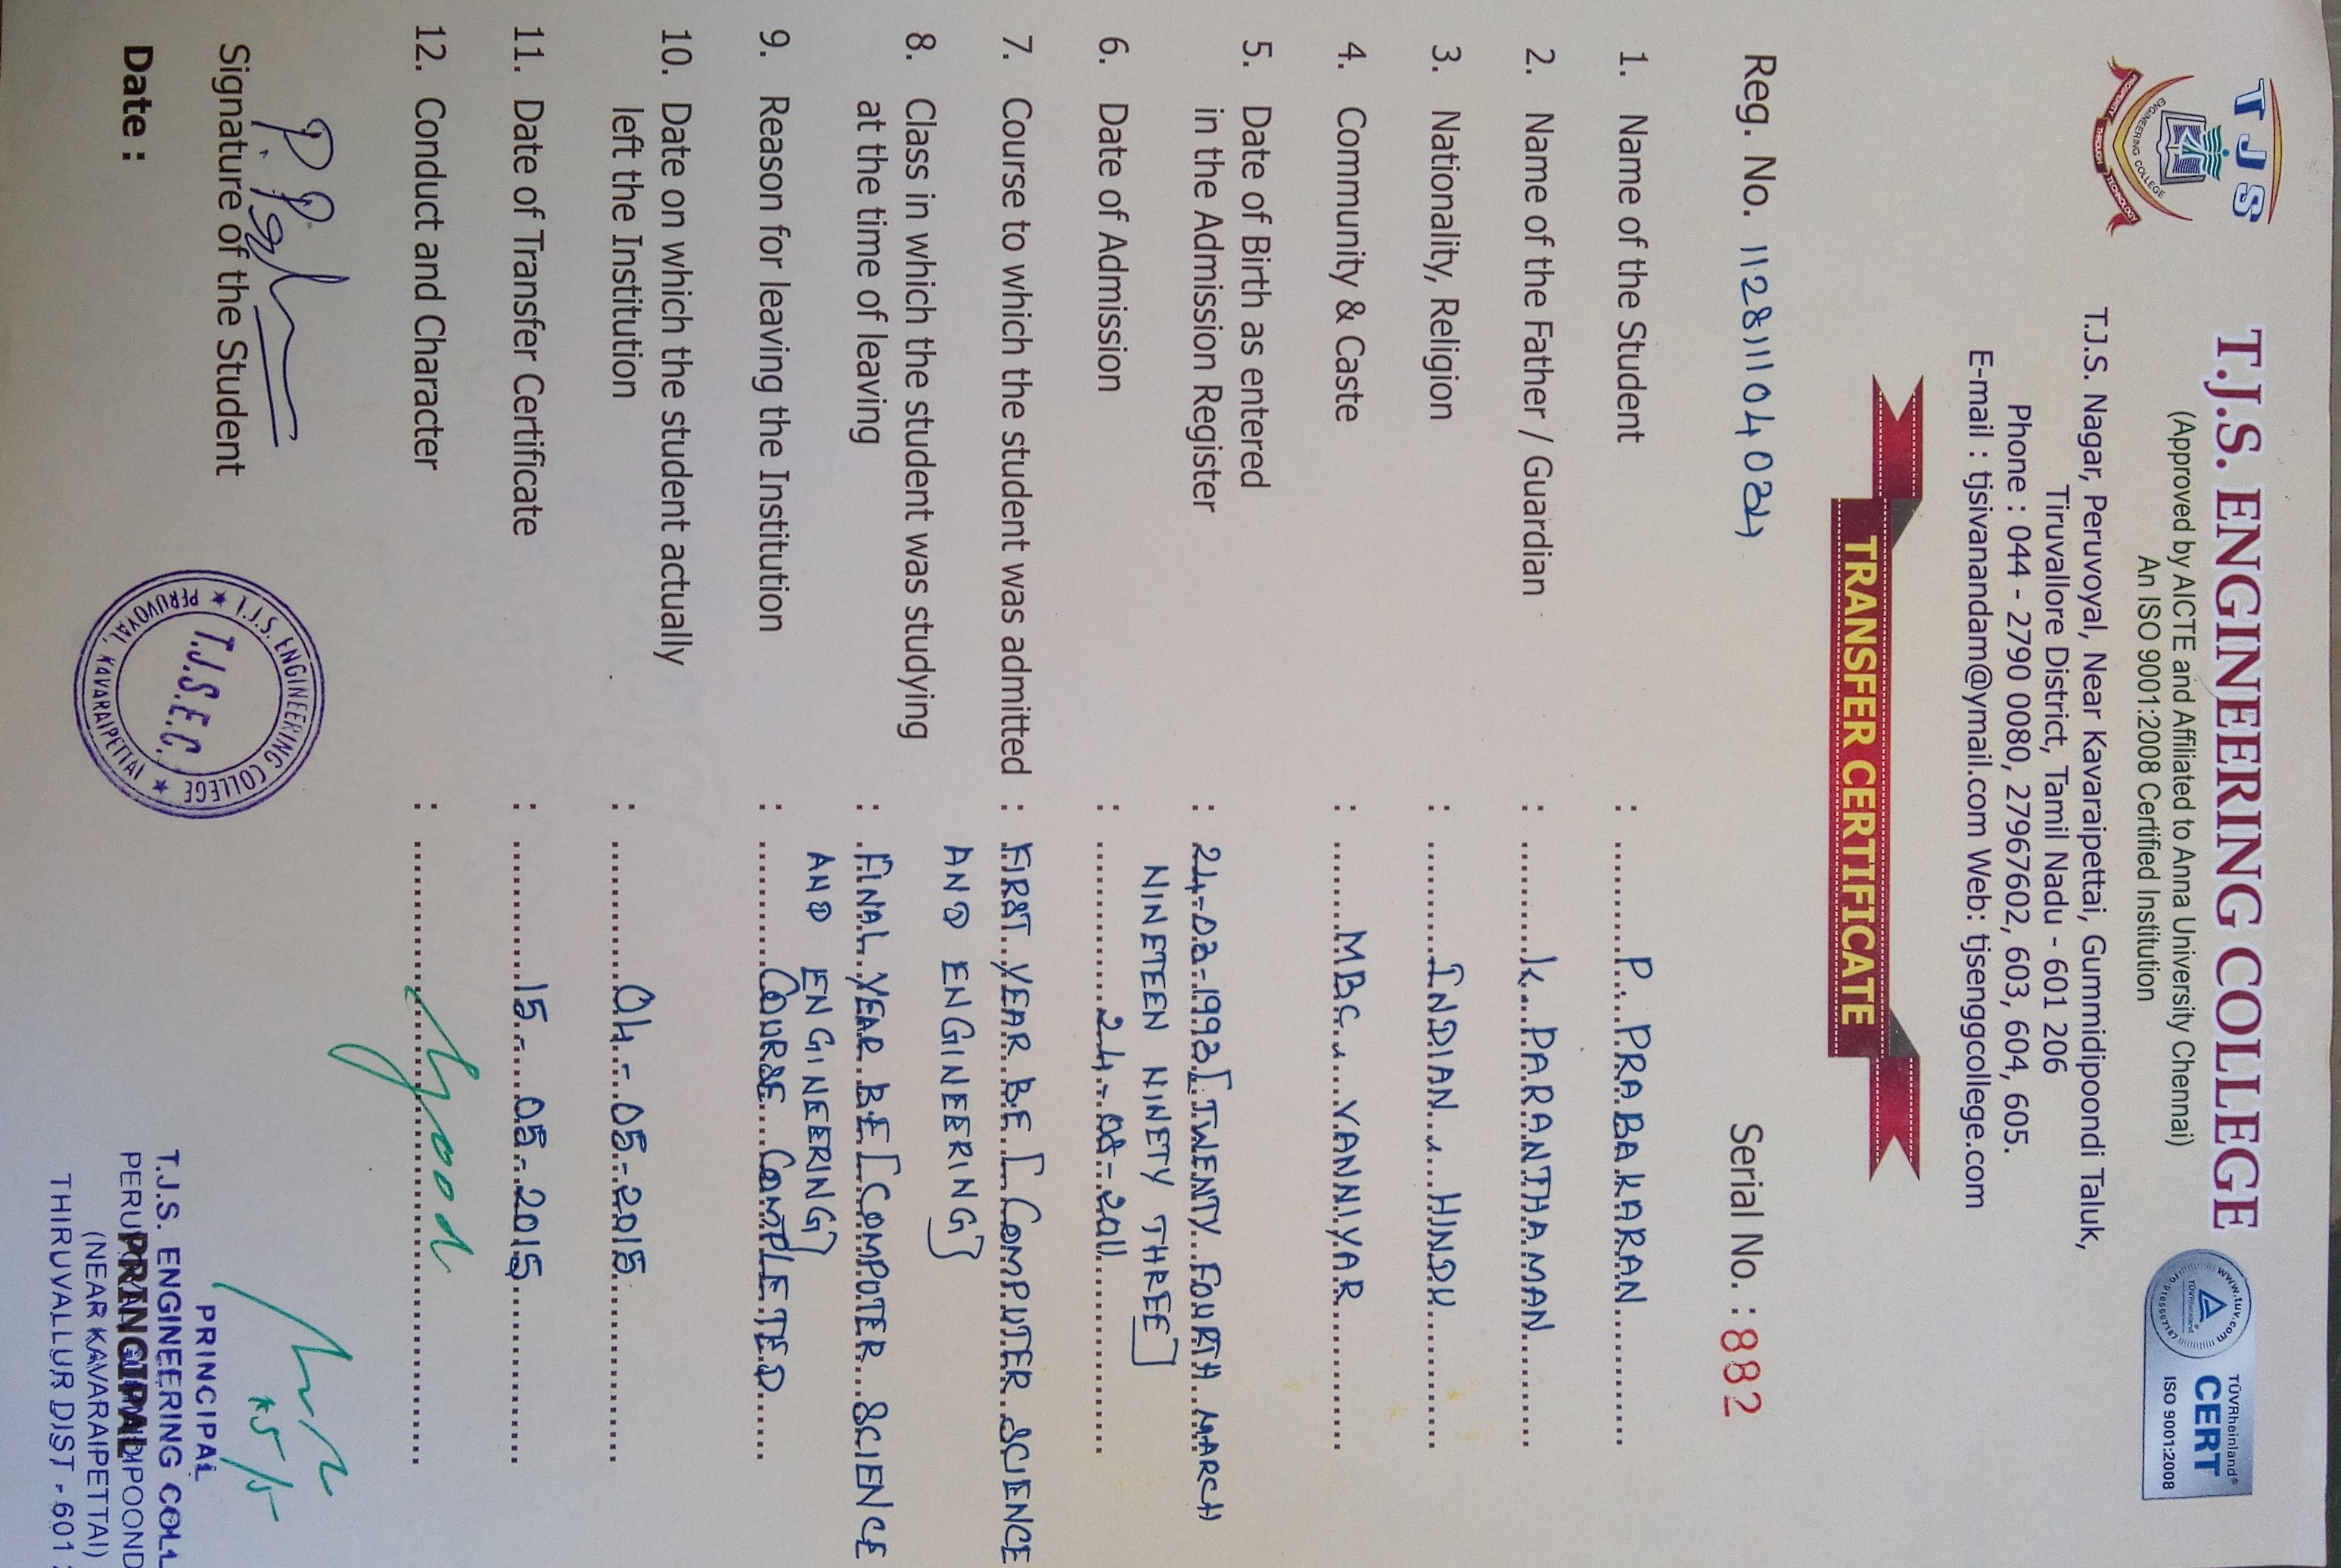 TJS
ENGINEERING COLLEGE
PROSPERITY THROUGH TECHNOLOGY
T.J.S. ENGINEERING COLLEGE
(Approved by AICTE and Affiliated to Anna University Chennai)
An ISO 9001:2008 Certified Institution
T.J.S. Nagar, Peruvoyal, Near Kavaraipettai, Gummidipoondi Taluk,
Tiruvallore District, Tamil Nadu - 601 206
Phone : 044 - 2790 0080, 27967602, 603, 604, 605.
E-mail : tjsivanandam@ymail.com Web: tjsenggcollege.com
www.tuv.com
TÜVRheinland®
CERT
ISO 9001:2008
TRANSFER CERTIFICATE
Reg. No. 112811104024 Serial No. : 882
1. Name of the Student : P. PRABAKARAN
2. Name of the Father / Guardian : K. PARANTHAMAN
3. Nationality, Religion : INDIAN, HINDU
4. Community & Caste : MBC, VANNIYAR
5. Date of Birth as entered
in the Admission Register : 24-03-1993 [TWENTY FOURTH MARCH
NINETEEN NINETY THREE]
6. Date of Admission : 24-08-2011
7. Course to which the student was admitted : FIRST YEAR B.E [COMPUTER SCIENCE
AND ENGINEERING]
8. Class in which the student was studying
at the time of leaving : FINAL YEAR B.E [COMPUTER SCIENCE
AND ENGINEERING]
9. Reason for leaving the Institution : COURSE COMPLETED
10. Date on which the student actually
left the Institution : 04-05-2015
11. Date of Transfer Certificate : 15-05-2015
12. Conduct and Character : Good
Signature of the Student
Date :
T.J.S. ENGINEERING COLLEGE
T.J.S.E.C.
PERUVOYAL, KAVARAIPETTAI
15/5
PRINCIPAL
T.J.S. ENGINEERING COLL
PRINCIPAL
(NEAR KAVARAIPETTAI)
THIRUVALLUR DIST - 601